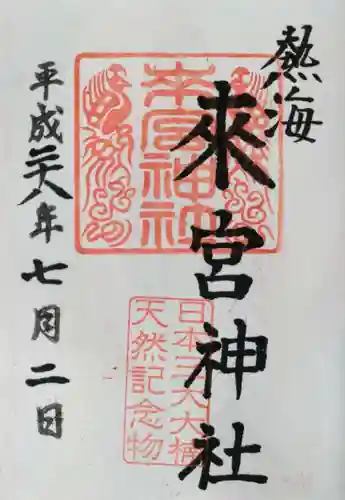 熱海
來宮神社
平成二十八年七月二日
來宮神社
日本三大大楠
天然記念物